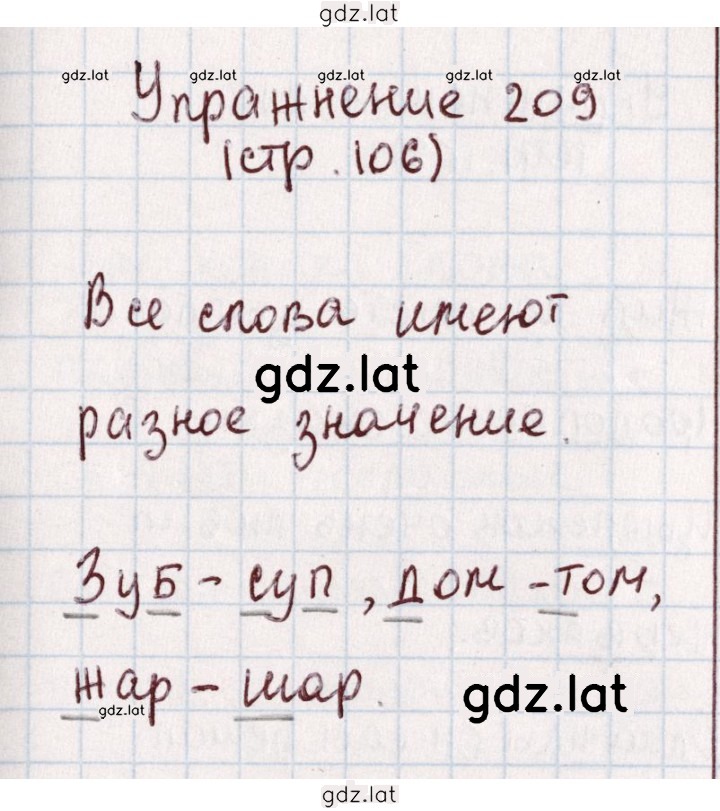 gdz.lat
gdz.lat gdz.lat gdz.lat gdz.lat gdz.lat
Упражнение 209
(стр. 106)
Все слова имеют
gdz.lat
разное значение.
Зуб - суп, дом - том,
жар - шар.
gdz.lat
gdz.lat
gdz.lat